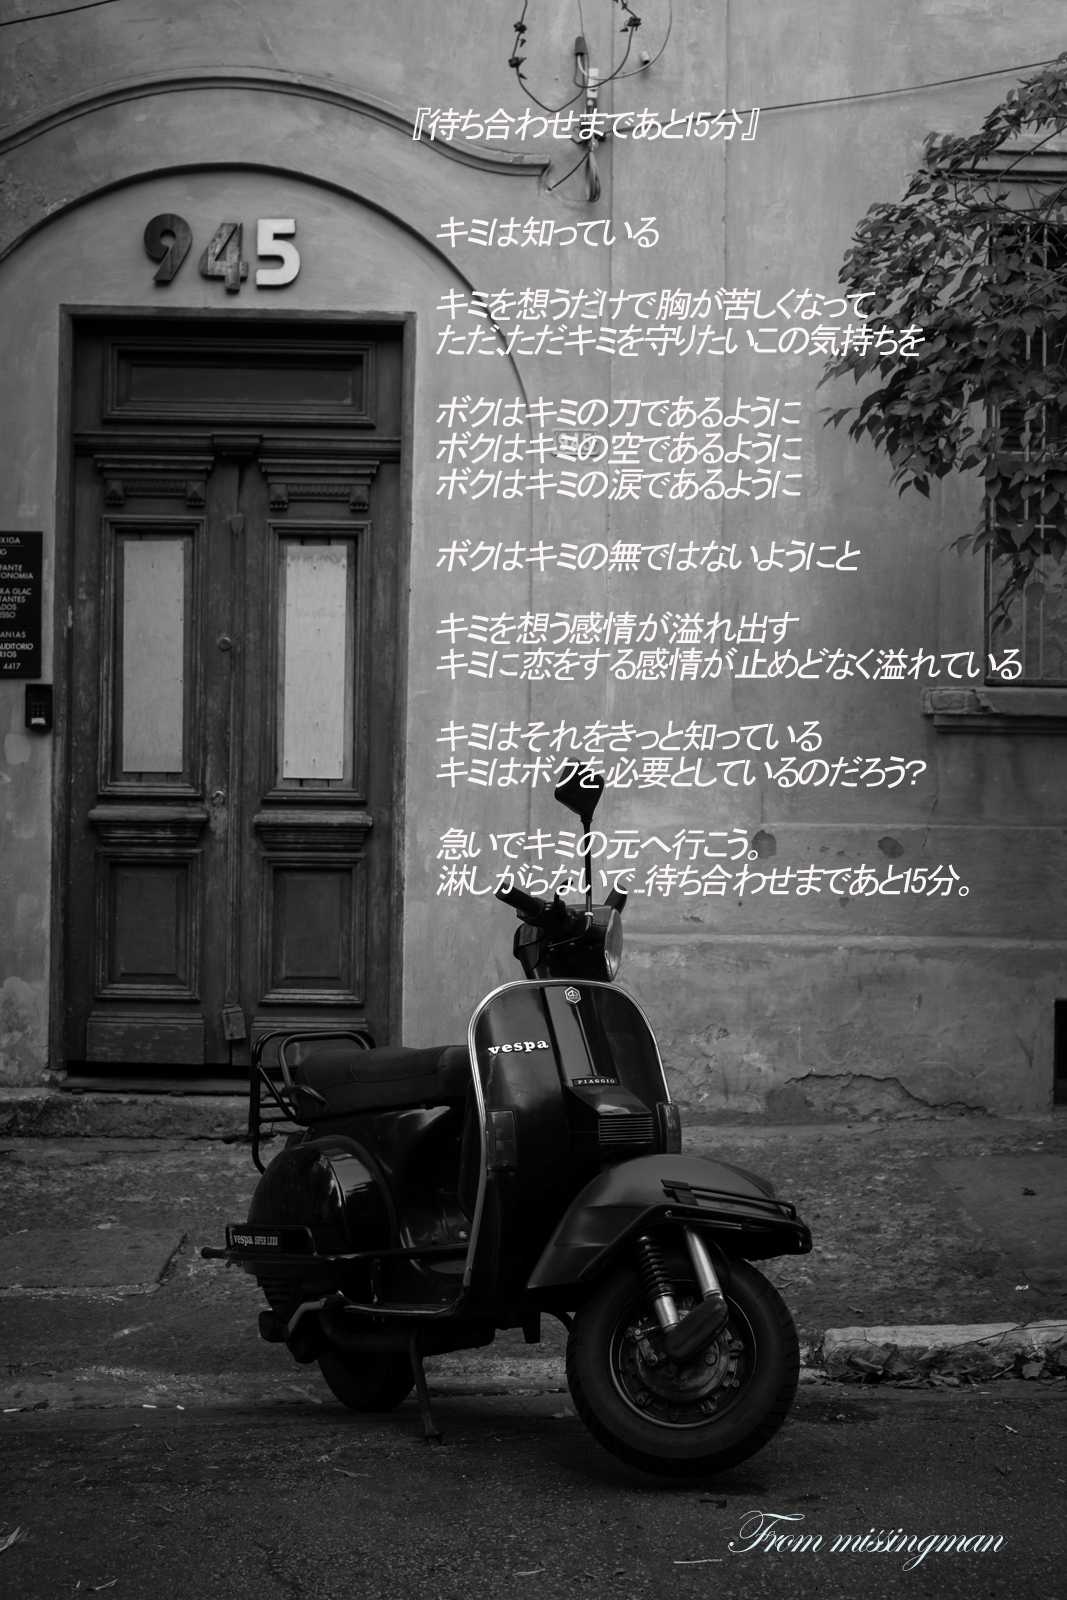 『待ち合わせまであと15分』
キミは知っている
キミを想うだけで胸が苦しくなって
ただ、ただキミを守りたいこの気持ちを
ボクはキミの刀であるように
ボクはキミの空であるように
ボクはキミの涙であるように
ボクはキミの無ではないようにと
キミを想う感情が溢れ出す
キミに恋をする感情が止めどなく溢れている
キミはそれをきっと知っている
キミはボクを必要としているのだろう?
急いでキミの元へ行こう。
淋しがらないで...待ち合わせまであと15分。
945
945
EXIGA
FANTE
TONOMIA
KA GLAC
TANTES
ADOS
ESSO
ANIAS
AUDITORIO
RIOS
4417
vespa
PIAGGIO
vespa
From missingman